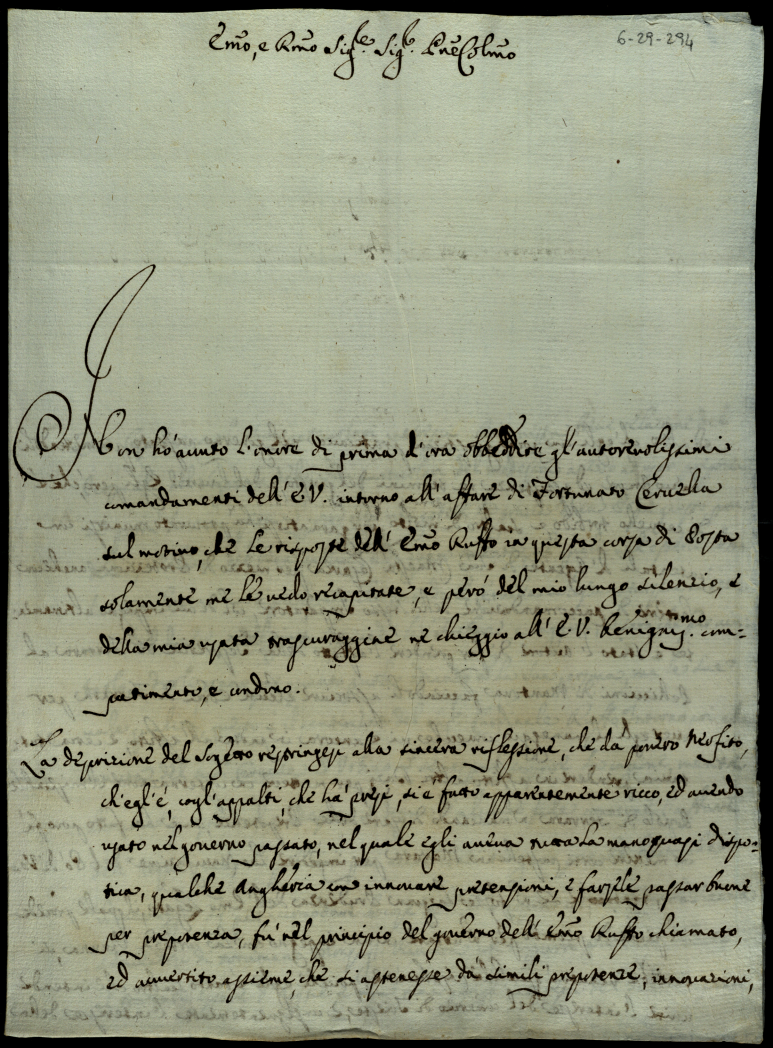 6-29-294
Emo, e Rmo Sigre. Sigr. Prne Colmo
Non hò auuto l'onore di prima d'ora obbedire gl'autoreuolissimi
comandamenti dell'E.V. intorno all'affare di Fortunato Ceruella
sul motiuo, che le risposte dell'Emo Ruffo in questa corsa di Posta
solamente me le uedo recapitate, e però del mio lungo silenzio, e
della mia usata trascuraggine ne chieggio all'E.V. benignissmo. com=
patimento, e condono.
La descrizione del Sogetto restringesi alla sincera riflessione, che da pouero Neofito,
ch'egl'è, cogl'appalti, che hà presi, si è fatto apparentemente ricco, ed auendo
usato nel gouerno passato, nel quale egli aueua tutta la mano quasi dispo=
tica, qualche Angheria con innouare pretensioni, e farsele passar buone
per prepotenza, fù nel principio del gouerno dell'Emo Ruffo chiamato,
ed auuertito assieme, che si astenesse da simili prepotenze, innouazioni,